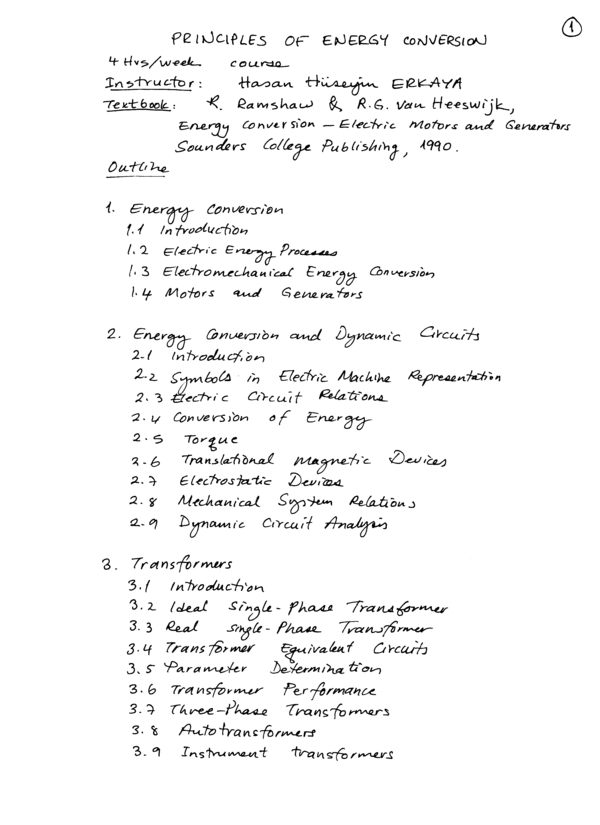 1
PRINCIPLES OF ENERGY CONVERSION
4 Hrs/week course
Instructor: Hasan Hüseyin ERKAYA
Textbook: R. Ramshaw & R.G. van Heeswijk,
Energy conversion – Electric Motors and Generators
Sounders College Publishing, 1990.
Outline
1. Energy Conversion
1.1 Introduction
1.2 Electric Energy Processes
1.3 Electromechanical Energy Conversion
1.4 Motors and Generators
2. Energy Conversion and Dynamic Circuits
2.1 Introduction
2.2 Symbols in Electric Machine Representation
2.3 Electric Circuit Relations
2.4 Conversion of Energy
2.5 Torque
2.6 Translational Magnetic Devices
2.7 Electrostatic Devices
2.8 Mechanical System Relations
2.9 Dynamic Circuit Analysis
3. Transformers
3.1 Introduction
3.2 Ideal Single-Phase Transformer
3.3 Real Single-Phase Transformer
3.4 Transformer Equivalent Circuits
3.5 Parameter Determination
3.6 Transformer Performance
3.7 Three-Phase Transformers
3.8 Autotransformers
3.9 Instrument transformers